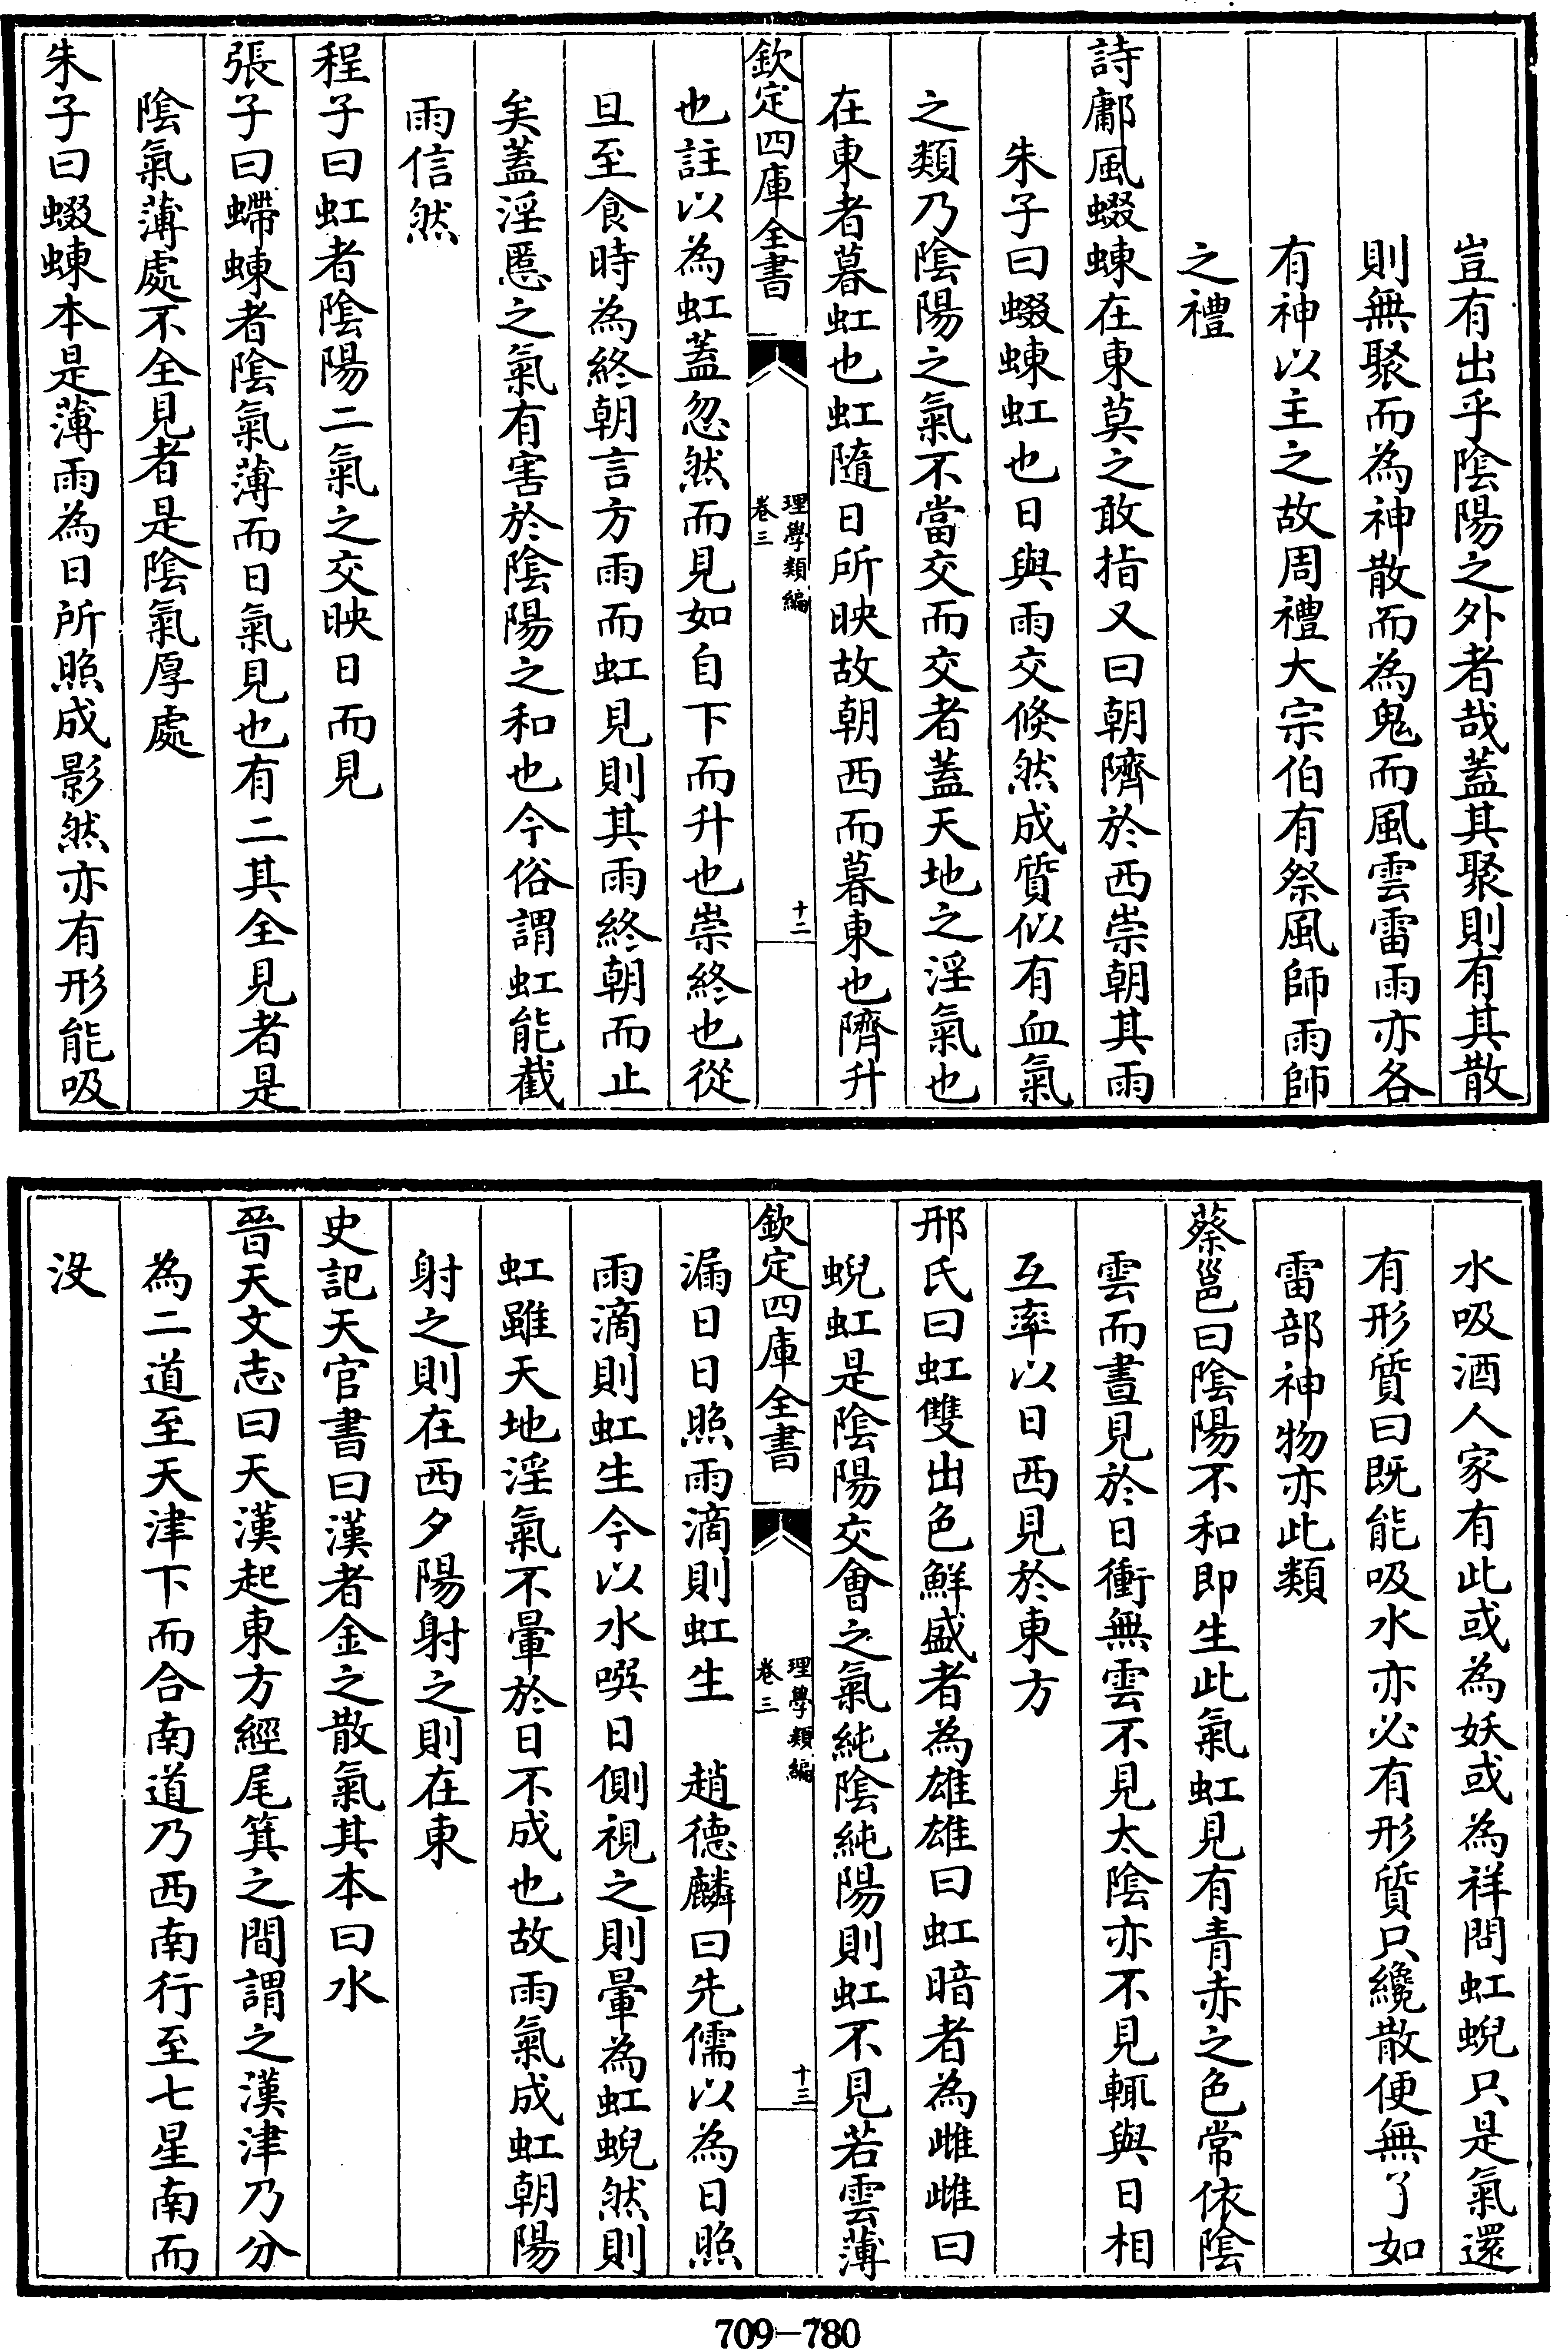 豈有出乎陰陽之外者哉蓋其聚則有其散
則無聚而為神散而為鬼而風雲雷雨亦各
有神以主之故周禮大宗伯有祭風師雨師
之禮
詩鄘風蝃蝀在東莫之敢指又曰朝隮於西崇朝其雨
朱子曰蝃蝀虹也日與雨交倐然成質似有血氣
之類乃陰陽之氣不當交而交者蓋天地之淫氣也
在東者暮虹也虹隨日所映故朝西而暮東也隮升
欽定四庫全書
理學類編
卷三
十二
也註以為虹蓋忽然而見如自下而升也崇終也從
旦至食時為終朝言方雨而虹見則其雨終朝而止
矣蓋淫慝之氣有害於陰陽之和也今俗謂虹能截
雨信然
程子曰虹者陰陽二氣之交映日而見
張子曰螮蝀者陰氣薄而日氣見也有二其全見者是
陰氣薄處不全見者是陰氣厚處
朱子曰蝃蝀本是薄雨為日所照成影然亦有形能吸
水吸酒人家有此或為妖或為祥問虹蜺只是氣還
有形質曰既能吸水亦必有形質只纔散便無了如
雷部神物亦此類
蔡邕曰陰陽不和即生此氣虹見有青赤之色常依陰
雲而晝見於日衝無雲不見太陰亦不見輒與日相
互率以日西見於東方
邢氏曰虹雙出色鮮盛者為雄雄曰虹暗者為雌雌曰
蜺虹是陰陽交會之氣純陰純陽則虹不見若雲薄
欽定四庫全書
理學類編
卷三
十三
漏日日照雨滴則虹生 趙德麟曰先儒以為日照
雨滴則虹生今以水噀日側視之則暈為虹蜺然則
虹雖天地淫氣不暈於日不成也故雨氣成虹朝陽
射之則在西夕陽射之則在東
史記天官書曰漢者金之散氣其本曰水
晉天文志曰天漢起東方經尾箕之間謂之漢津乃分
為二道至天津下而合南道乃西南行至七星南而
沒
709—780